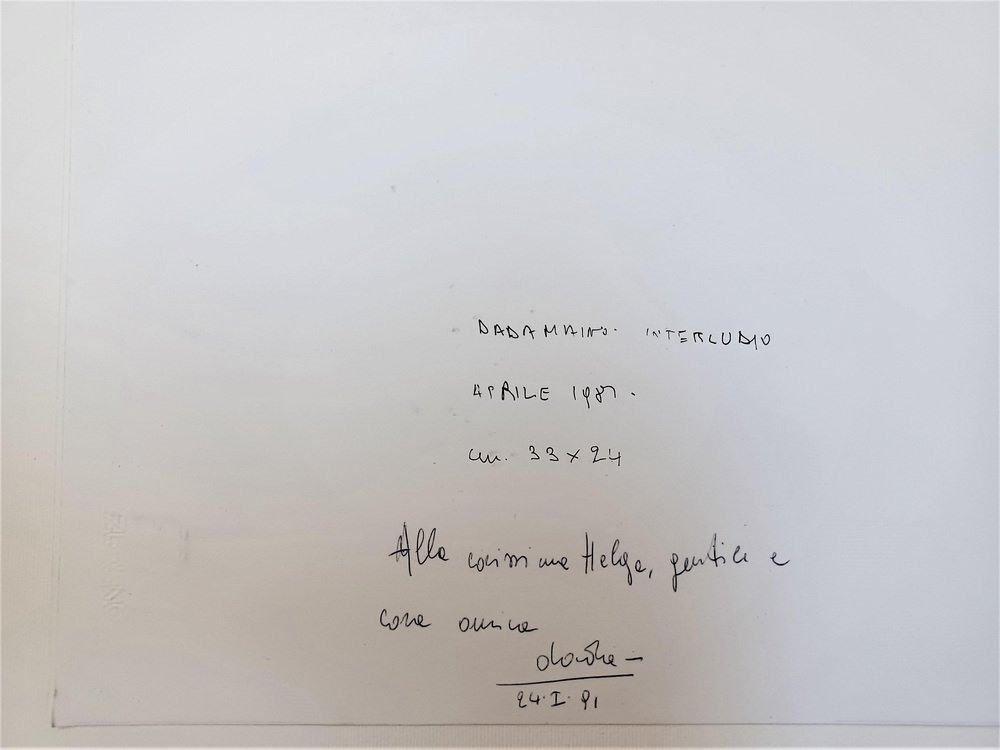 DADAMAINO. INTERLUDIO
APRILE 1981.
cm. 33 x 24
Alla carissima Helga, gentile e
cara amica
24. I. 91